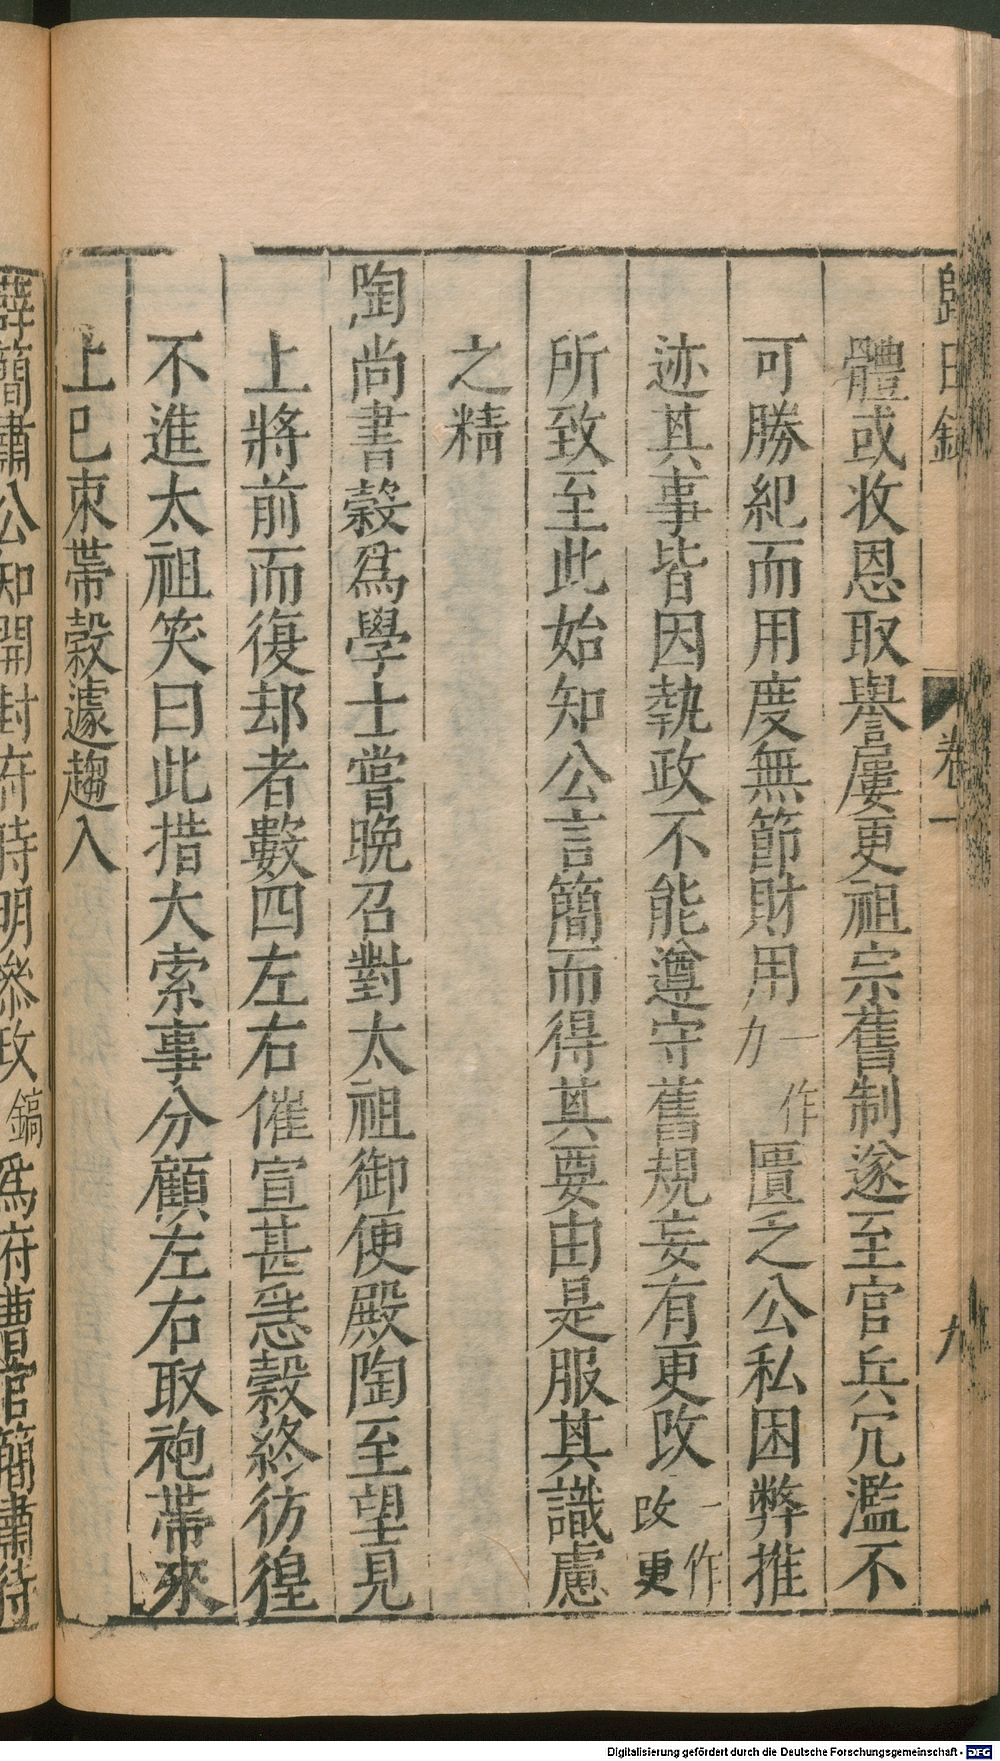 歸田錄 卷一 九
體或收恩取譽屢更祖宗舊制遂至官兵冗濫不
可勝紀而用度無節財用一作力匱乏公私困弊推
迹其事皆因執政不能遵守舊規妄有更改一作改更
所致至此始知公言簡而得其要由是服其識慮
之精
陶尚書穀爲學士嘗晚召對太祖御便殿陶至望見
上將前而復却者數四左右催宣甚急穀終彷徨
不進太祖笑曰此措大索事分顧左右取袍帶來
上已束帶穀遽趨入
薛簡肅公知開封府時明參政鎬爲府曹官簡肅待
Digitalisierung gefördert durch die Deutsche Forschungsgemeinschaft - DFG